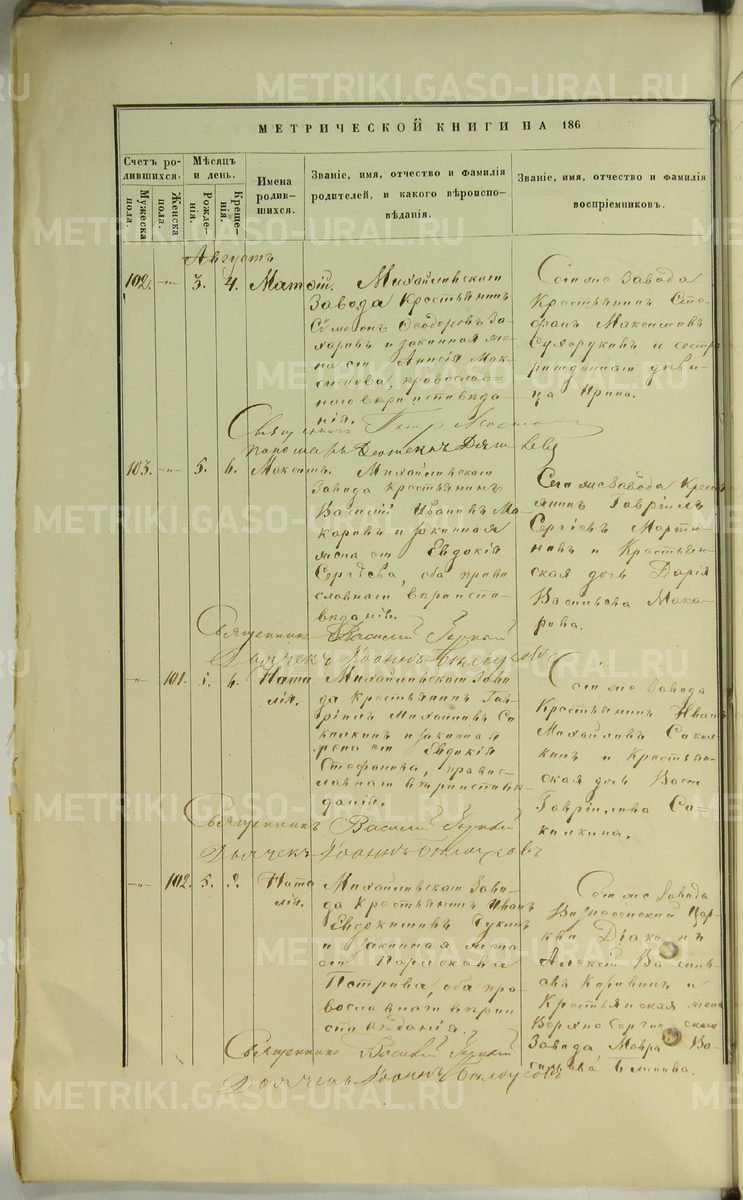 МЕТРИЧЕСКОЙ КНИГИ НА 186
Счетъ ро-
дившихся.
Мужеска
пола.
Женска
пола.
Мѣсяцъ
и день.
Рожде-
нія.
Креще-
нія.
Имена
родив-
шихся.
Званіе, имя, отчество и фамилія
родителей, и какого вѣроиспо-
вѣданія.
Званіе, имя, отчество и фамилія
воспріемниковъ.
Августъ
102. -"- 3. 4. Матѳій.
Михайловскаго
Завода Крестьянинъ
Симеонъ Ѳеодоровъ За-
харовъ и законная же-
на его Анисія Мак-
симова, православ-
наго вѣроисповѣда-
нія.
Сего же завода
Крестьянинъ Сте-
фанъ Максимовъ
Сухоруковъ и сестра
рожденнаго дѣви-
ца Ирина.
Священникъ Петръ
Пономарь
103. -"- 5. 6. Максимъ.
Михайловскаго
Завода Крестьянинъ
Василій Ивановъ Ма-
каровъ и законная
жена его Евдокія
Сергѣева, оба право
славнаго вѣроиспо-
вѣданія.
Сего же Завода Крест
янинъ Гавріилъ
Сергѣевъ Марты-
новъ и Крестьян-
ская дочь Дарія
Васильева Мака-
рова.
Священникъ Василій
Дьячекъ Іоаннъ Бѣлоусовъ
-"- 101. 5. 6. Ната
лія.
Михайловскаго Заво
да Крестьянинъ Гав-
ріилъ Михайловъ Со
колкинъ и законная
жена его Евдокія
Стефанова, правос-
лавнаго вѣроисповѣ
данія.
Сего же завода
Крестьянинъ Иванъ
Михайловъ Сокол-
кинъ и Крестьян-
ская дочь
Гавріилова Со-
колкина.
Священникъ Василій
Дьячекъ Іоаннъ Бѣлоусовъ
-"- 102. 5. Ната
лія.
Михайловскаго Заво-
да Крестьянинъ Иванъ
Евдокимовъ
и законная жена
его Параскева
Петрова, оба пра-
вославнаго вѣрои
сповѣданія.
Сего же Завода
Вознесенской Цер-
кви Діаконъ
Алексѣй Василь-
евъ Коровинъ и
Крестьянская жена
Верхно Сергинскаго
Завода, Мавра Ва-
сильева
Священникъ Василій
Дьячекъ Іоаннъ Бѣлоусовъ
METRIKI.GASO-URAL.RU